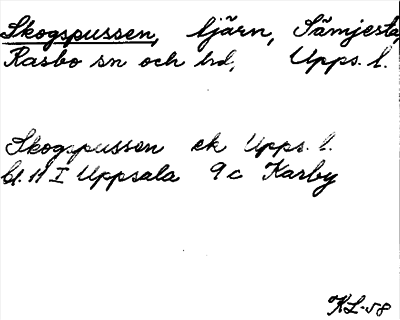 Skogspussen, tjärn, Sämjesta,
Rasbo sn och hd, Upps. l.
Skogspussen ek Upps. l.
bl. 11 I Uppsala 9 c Karby
KL-58